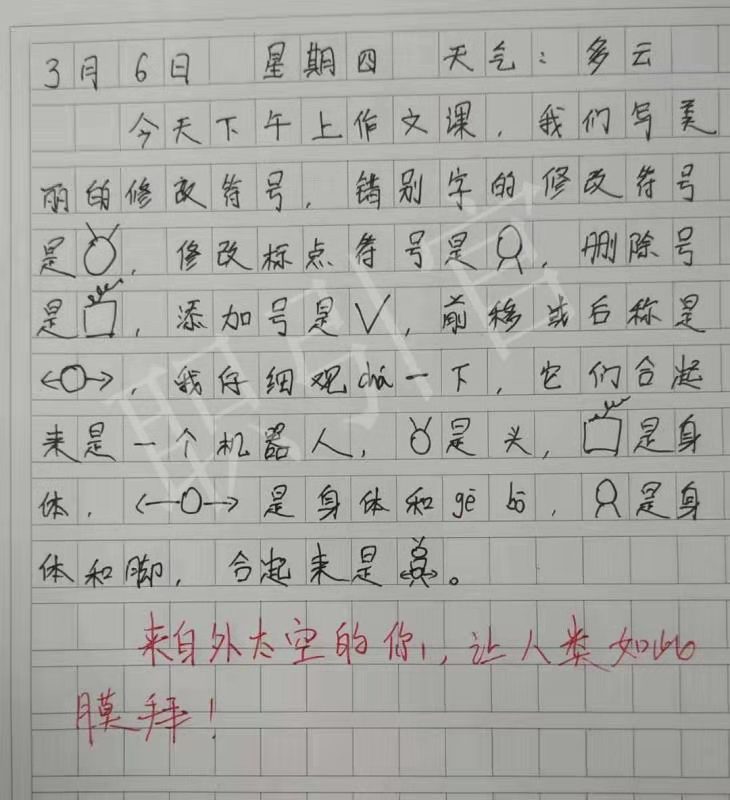 3月6日 星期四 天气:多云
今天下午上作文课,我们写美
丽的修改符号,错别字的修改符号
是,修改标点符号是,删除号
是,添加号是∨,前移或后称是
←○→,我仔细观chá一下,它们合起
来是一个机器人,是头,是身
体,←○→是身体和gē bō,是身
体和脚,合起来是。
来自外太空的你,让人类如此
膜拜!
职引官